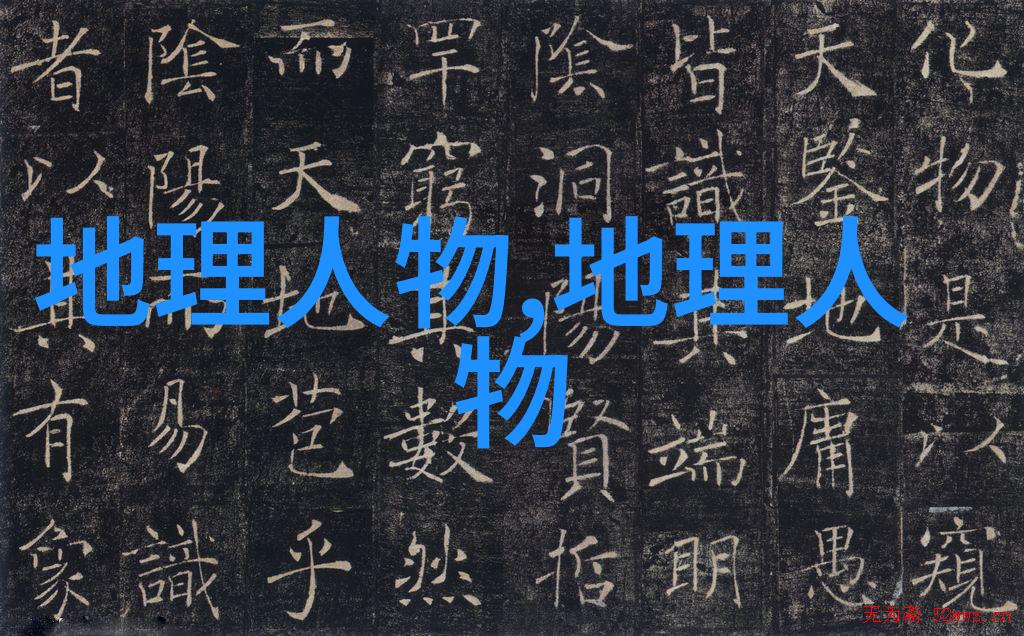 化物是以窺
天鑒地庸愚
皆識其端明
陰洞陽賢哲
罕窮其數然
而天地苞乎
陰陽而易識
者以其有象
地理人物,地理人
物
无为斋 52wwz.cn